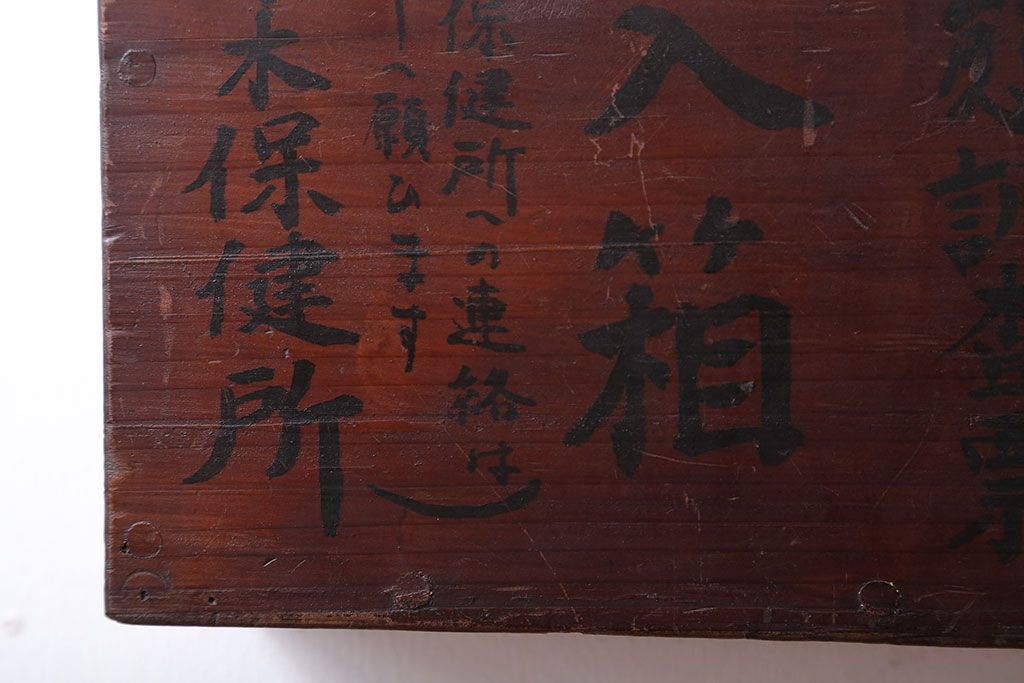 調査票
入箱
保健所への連絡は
ーへ願ひます)
木保健所